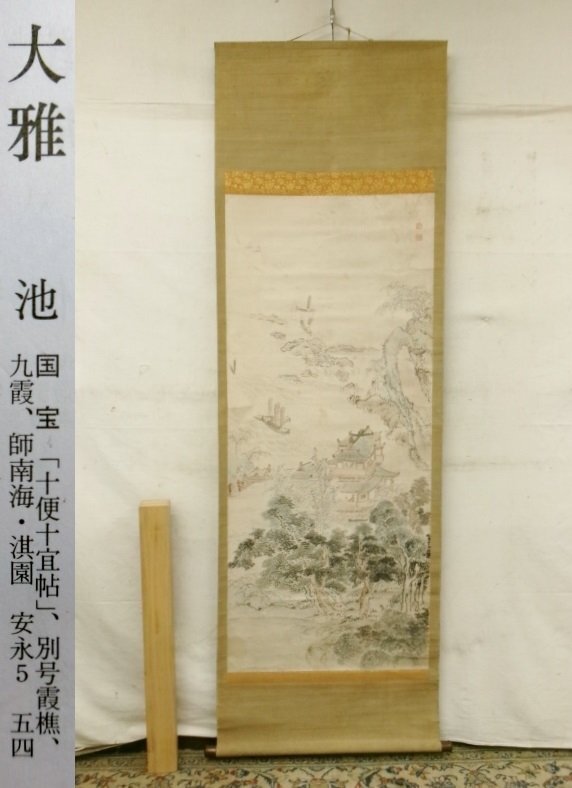 大雅
池
国宝「十便十宜帖」、別号霞樵、
九霞、師南海・淇園 安永5 五四